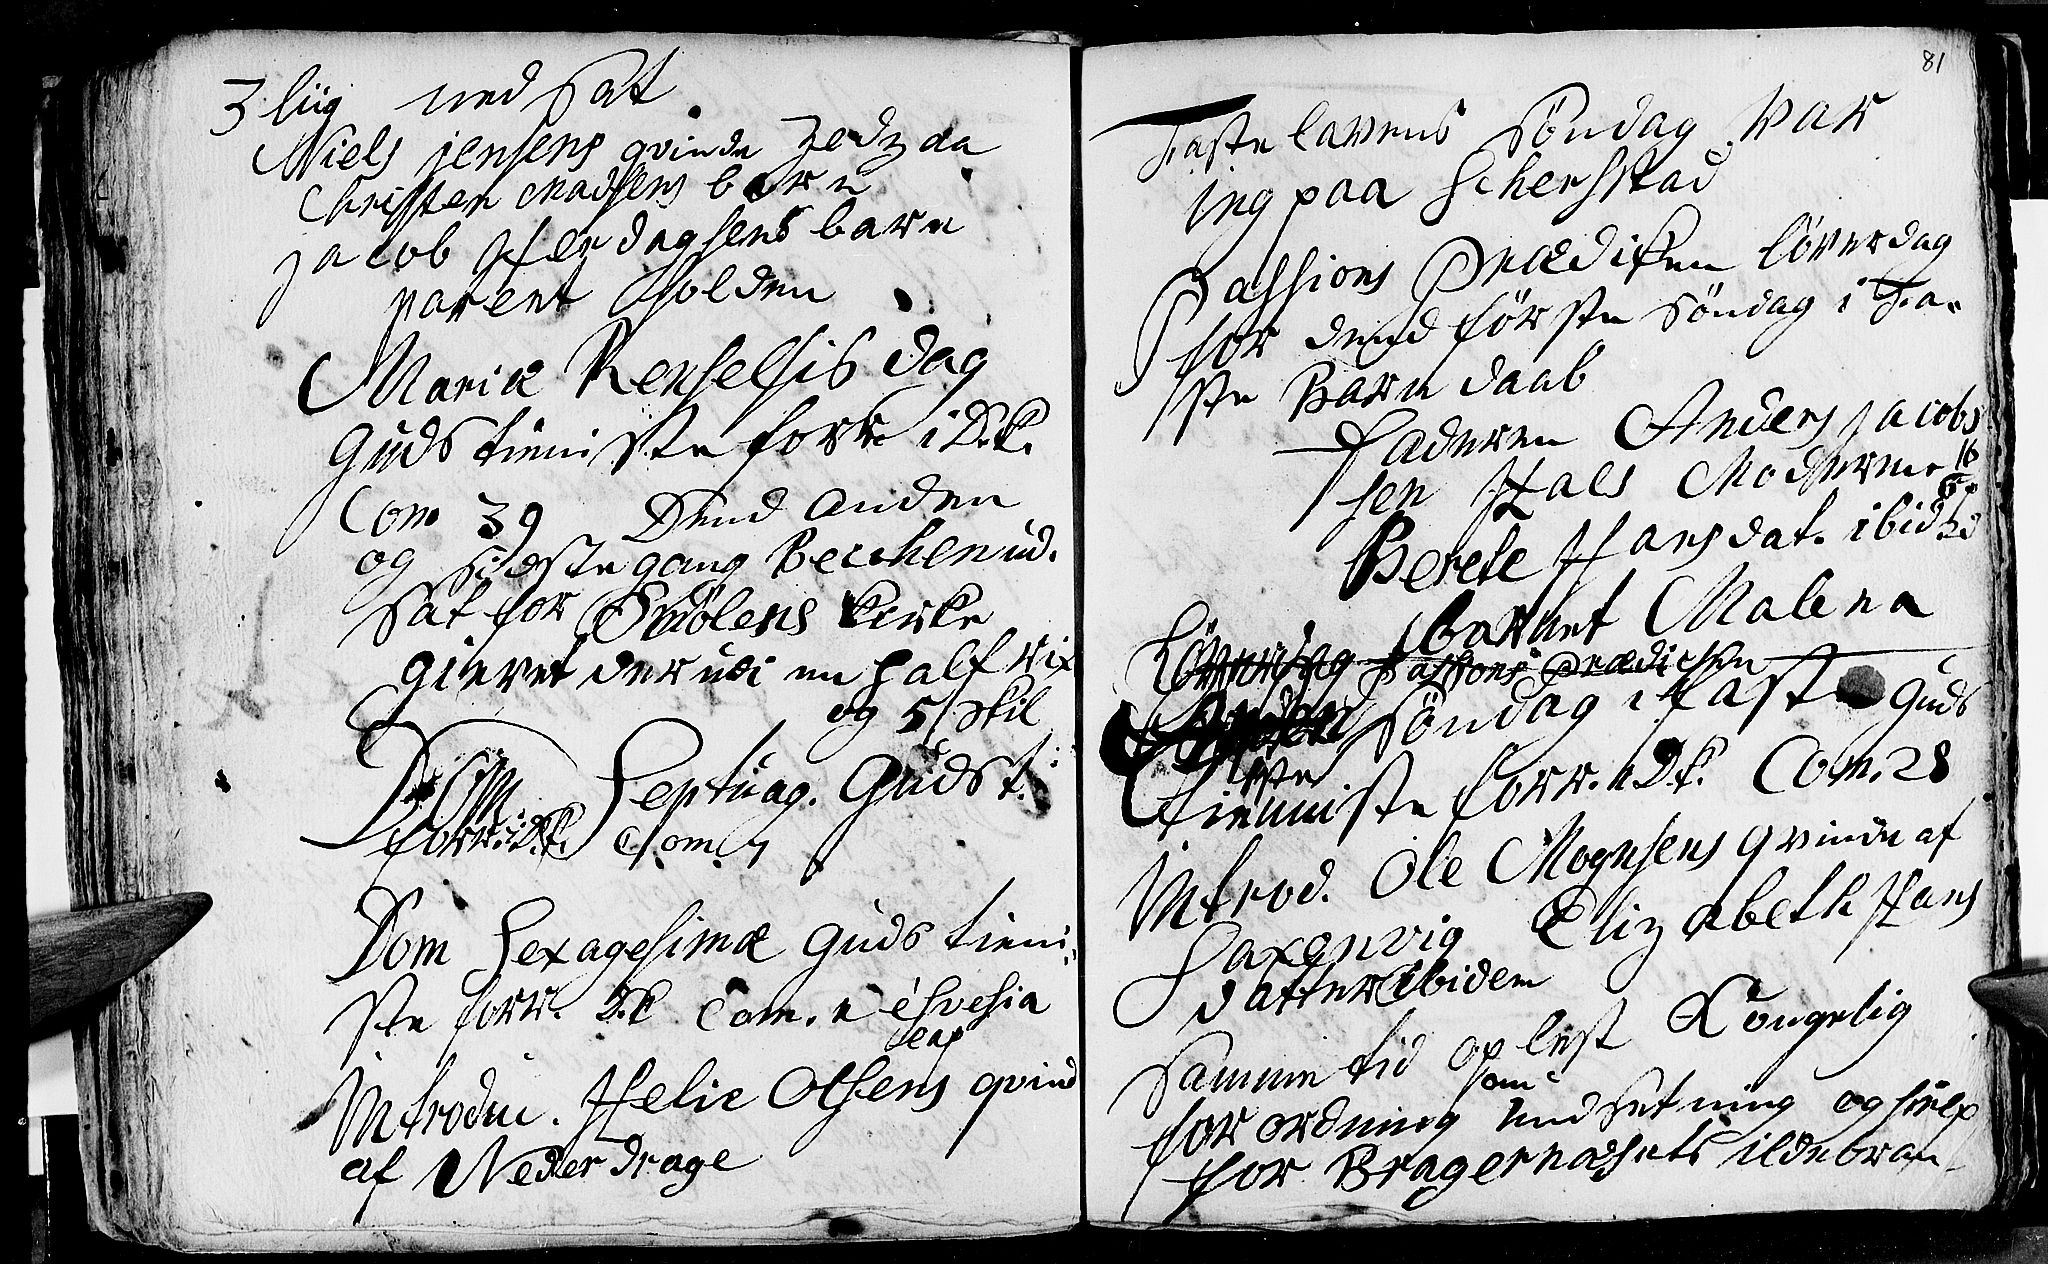 3 liig ned sat
Niels jensens qvinde
Christen Madsens barn
jacob Herdagsens barn
parent Holden
Mariæ Renselsis dag
Guds tieniste forr. i D.k.
Com 39 Dend anden
og sidste gang Becchen ud.
sat for kirke
gievet derudi en half rix
og 5 skil
Dom Septuag. Gudst.
forr. i D.k. Com. 7
Dom Sexagesimæ Guds tieni
ste forr. D.k Com. e
Introduc. Helie Olsens qvind
af Nederdrage
81
Fastelavens Söndag var
ing paa
Passions Prædiken löverdag
for dend förste Söndag i Fa-
ste Barn daab
Faderen Anders jacob
sen Hals Moderen
Berete Hansdat. ibid
Barnet Malena
Löverdag Passions Prædichen
Söndag i Faste Guds
ste
tieniste forr. i D.k. Com. 28
Introd. Ole Mognsens qvinde af
Saxenvig Elizabeth Hans
datter ibidem
Samme tid oplest Kongelig
om
forordning undsetning og hielp
for Bragernæsets ildebran